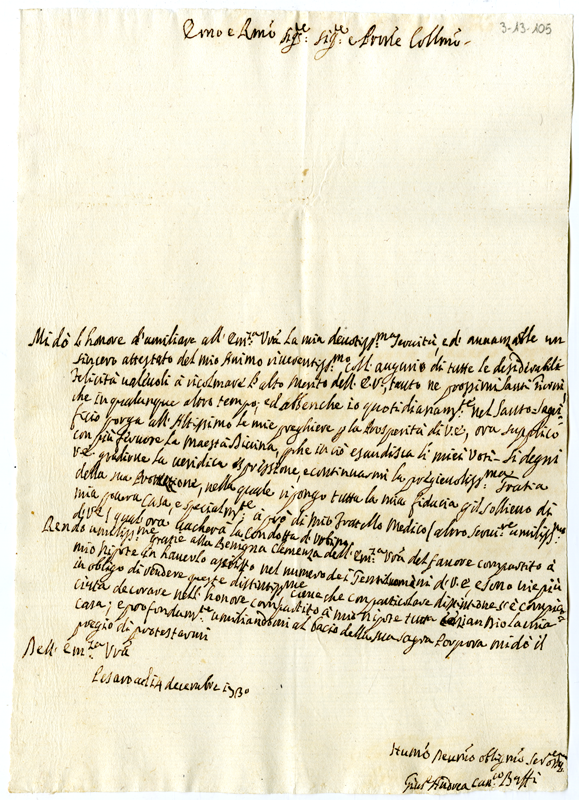 3-13-105
Emo e Rmo Sig.re Sig.re e Prone Collmo.
Mi dò l'honore d'umiliare all' Em.za Vrã La mia deuotiss.ma Seruitù, ed' auanzarle un
sincero attestato del mio Animo riuerentiss.mo coll' augurio di tutte le desiderabili
felicità ualeuoli à ricolmare L'alto Merito dell' E.V., tanto ne prossimi santi Giorni
che in qualunque altro tempo; ed abbenche io quotidianam.te nel Santo Sagri-
ficio porga all' Altissimo le mie preghiere p la Prosperità di V.E, ora supplico
con più feruore la Maestà Diuina, p che in ciò esaudisca li miei Voti. Si degni
V.E. gradirne la ueridica espressione, e continuarmi la pregieuoliss.ma Gratia
della sua Protezione, nella quale ripongo tutta la mia fiducia p il sollieuo di
mia pouera Casa, e specialm.te à prò di mio Fratello Medico (altro seru.re umiliss.mo
di V.E) qual' ora uacherà la Condotta d'Urbino.
Rendo umiliss.me grazie alla Benigna Clemenza dell' Em.za Vrã del fauore compartito à
mio nipote in hauerlo ascritto nel numero de i Gentiluomini di V.E. e sono uie più
in obligo di renderle queste distintiss.me che con particolare distintione s'è compia-
ciuta decorare nell' honore compartito à mio nipote tutta la mia
casa; e profondam.te umiliandomi al bacio della sua Sagra Porpora mi dò il
pregio di protestarmi
Dell' Em.za Vrã
Pesaro adi 14 decembre 1730
Humo Deumo obligmo Seruore
Gius. Andrea Can.co